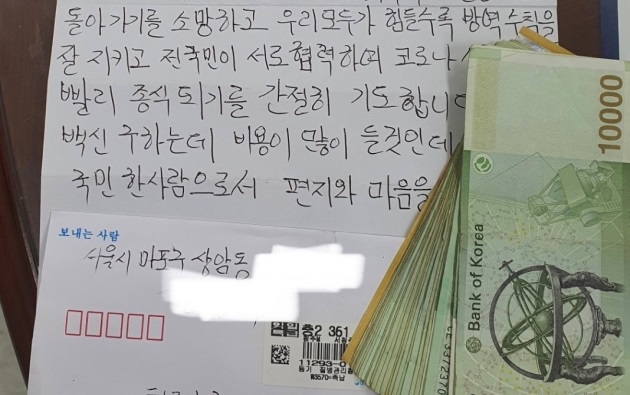 돌아가기를 소망하고 우리모두가 힘들수록 방역수칙을
잘 지키고 전국민이 서로협력하며 코로나
빨리 종식되기를 간절히 기도합니다
백신 구하는데 비용이 많이 들것인데
국민 한사람으로서 편지와 마음을
보내는 사람
서울시 마포구 상암동
총2 361
11293-0
등기 질병관리
10000
Bank of Korea